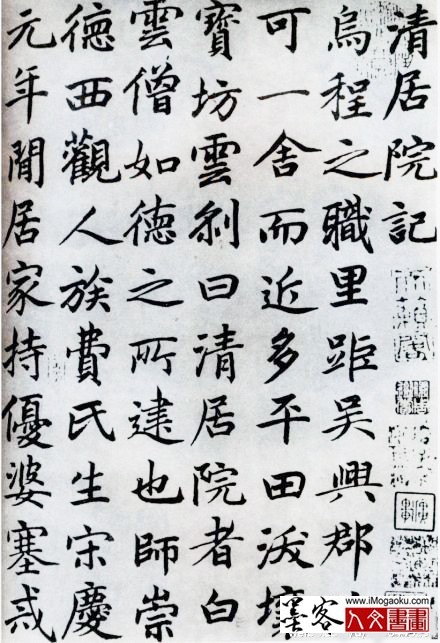 清居院記
烏程之職里距吳興郡
可一舍而近多平田沃壤
寶坊雲刹曰清居院者白
雲僧如德之所建也師崇
德西觀人族費氏生宋慶
元年間居家持優婆塞戒
墨客
www.iMogaoku.com
人文書畫